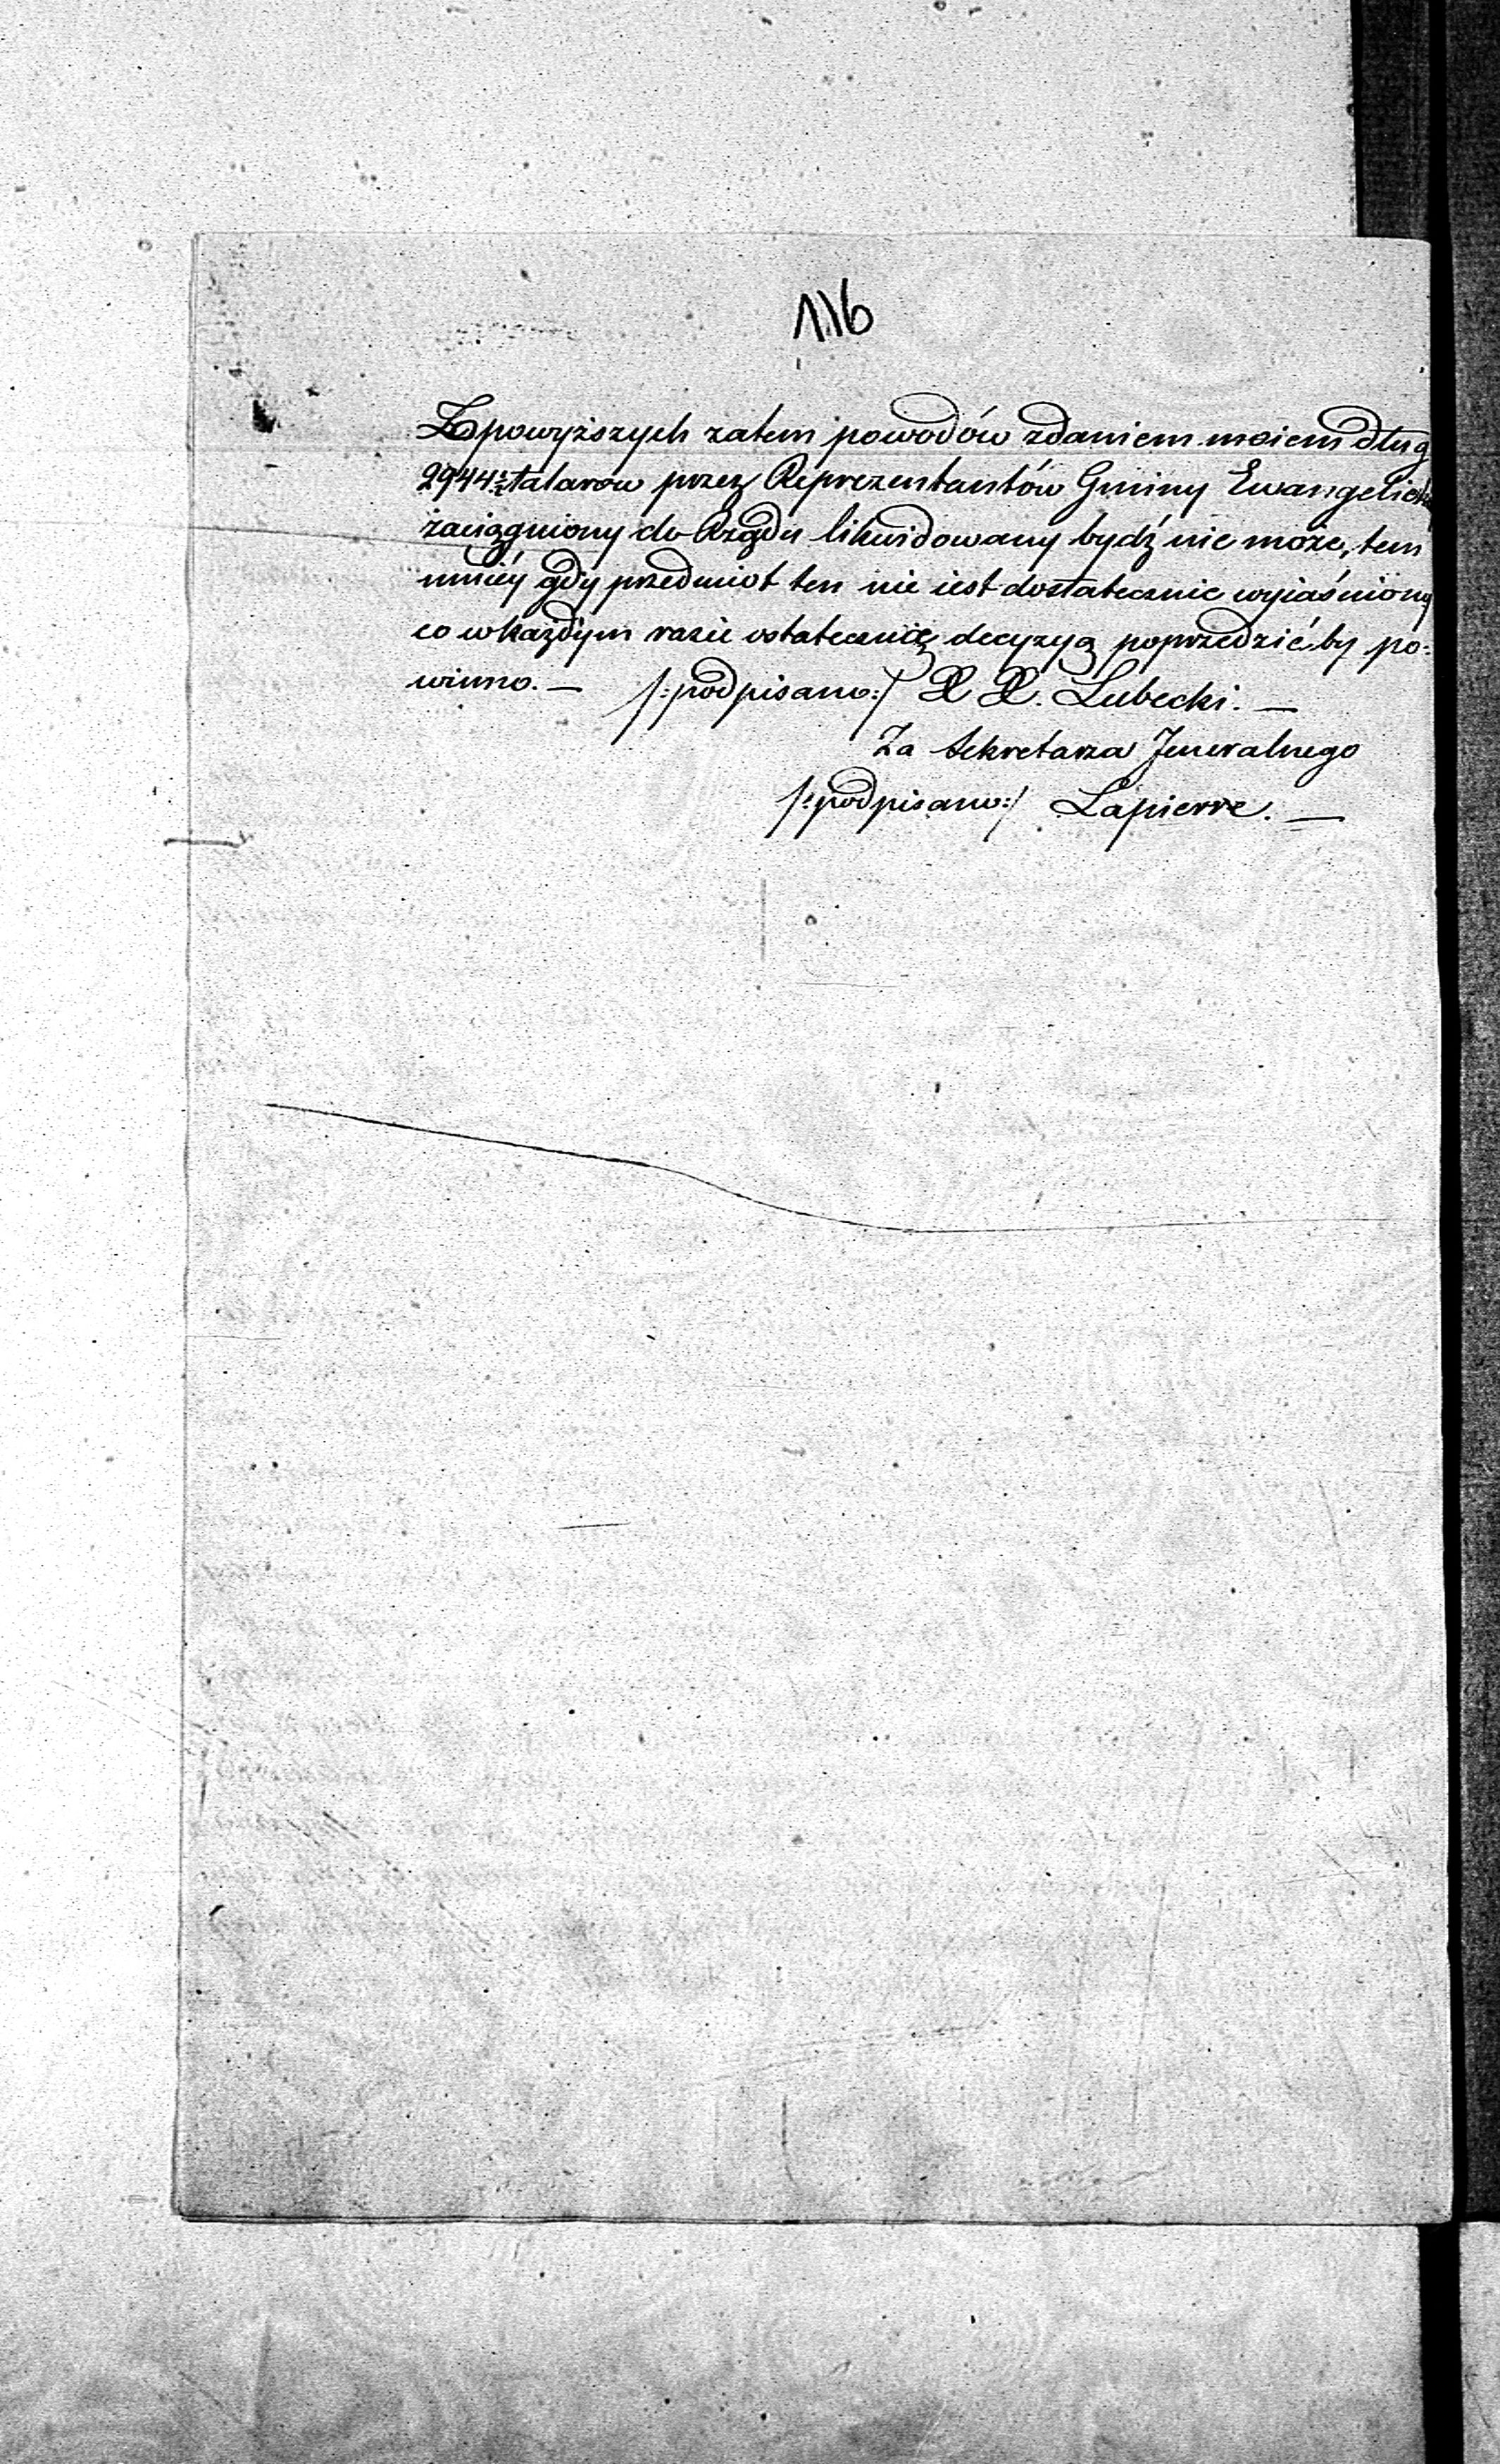 116
Z powyższych zatem powodów zdaniem moiem dług
2944½ talarów przez Reprezentantów Gminy Ewangelick
zaciągniony do Rządu likwidowany bydź nie może, tem
mniéy gdy przedmiot ten nie iest dostatecznie wyiaśniony
co w każdym razie ostateczną decyzyą poprzedzić by po:
winno. — /:podpisano:/ X X. Lubecki. —
Za Sekretarza Jeneralnego
/:podpisano:/ Lapierre. —